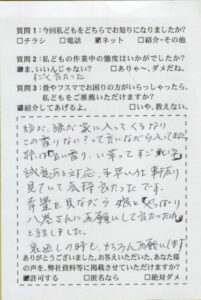 質問1:今回私どもをどちらでお知りになりましたか?
□チラシ □電話 ☑ネット □紹介・その他
質問2:私どもの作業中の態度はいかがでしたか?
☑ま、いいんじゃない? □ありゃ〜、ダメだね。
すごく良かった
質問3:畳やフスマでお困りの方がいらっしゃったら、
私どもをご推薦いただけますか?
☑紹介してあげるよ。 □いや、教えない。
娘が、家に入ってくるなり
この香りない?って言いながら入ってきた
良い香り、い草ってすごい
誠意ある対応、手早い仕事ぶり
見ていて気持良かったです。
青畳を見ながら娘と「やっぱり
八巻さんにお願いして良かったね」
と話しました。
裏返しの時も、もちろんお願いします
ありがとうございました。お答えいただいた、あなた様
の声を、弊社資料等に掲載させていただけますか?
☑許可する □匿名なら □絶対ダメ